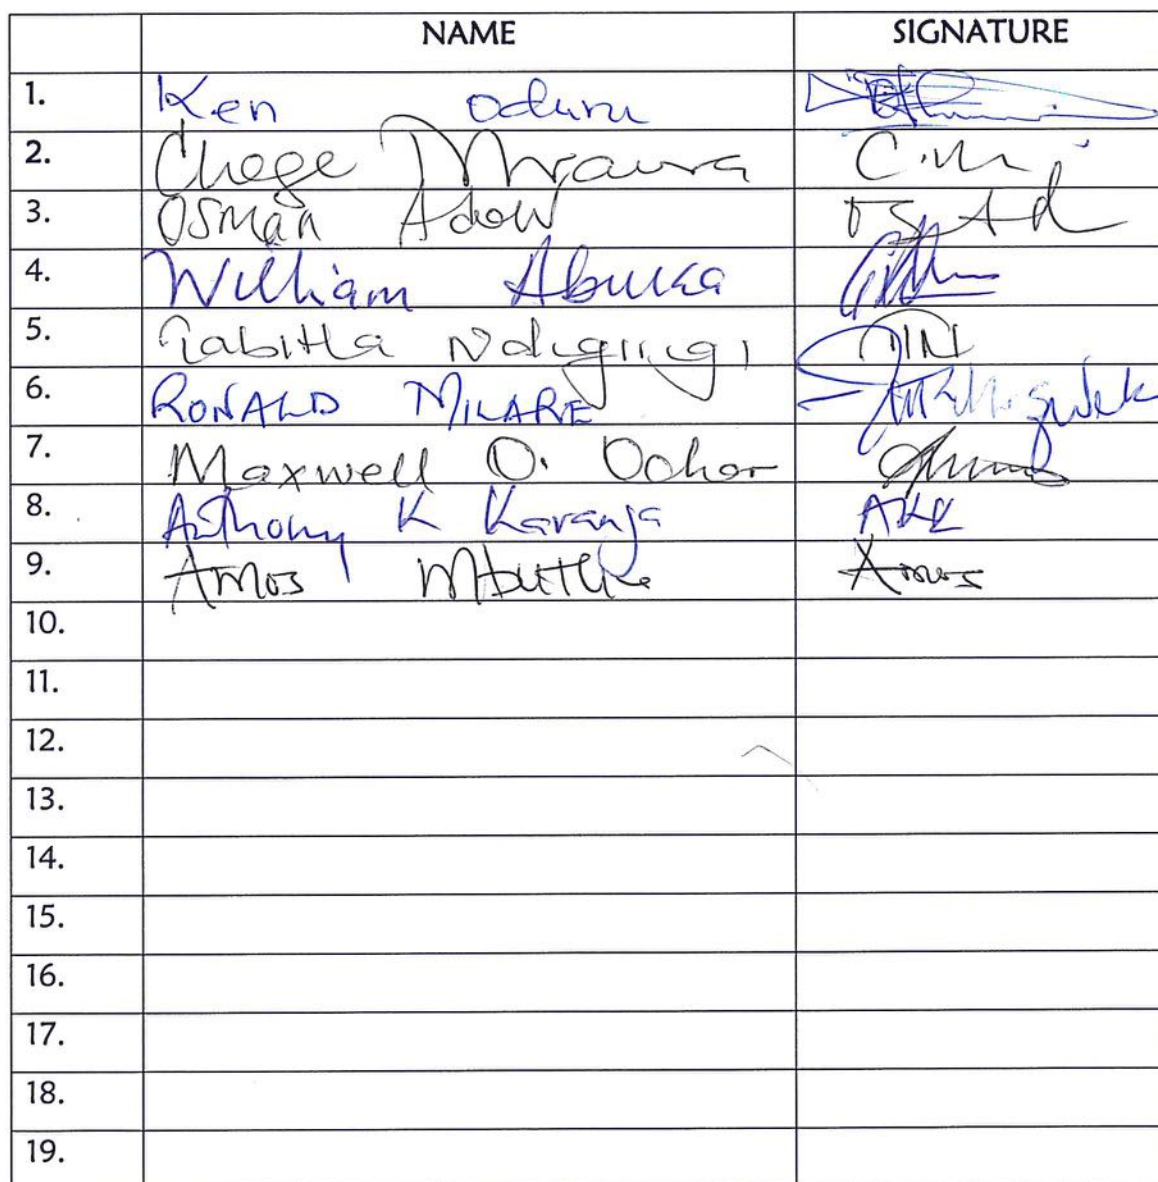 NAME SIGNATURE
1. Ken Oduru
2. Chege Mwaura
3. OSMAN Adow
4. William Abuka
5. Tabitha Ndigirigi TN
6. RONALD
7. Maxwell O. Ochar
8. Anthony K Karanja AKK
9. Amos Mbuthia Amos
10.
11.
12.
13.
14.
15.
16.
17.
18.
19.